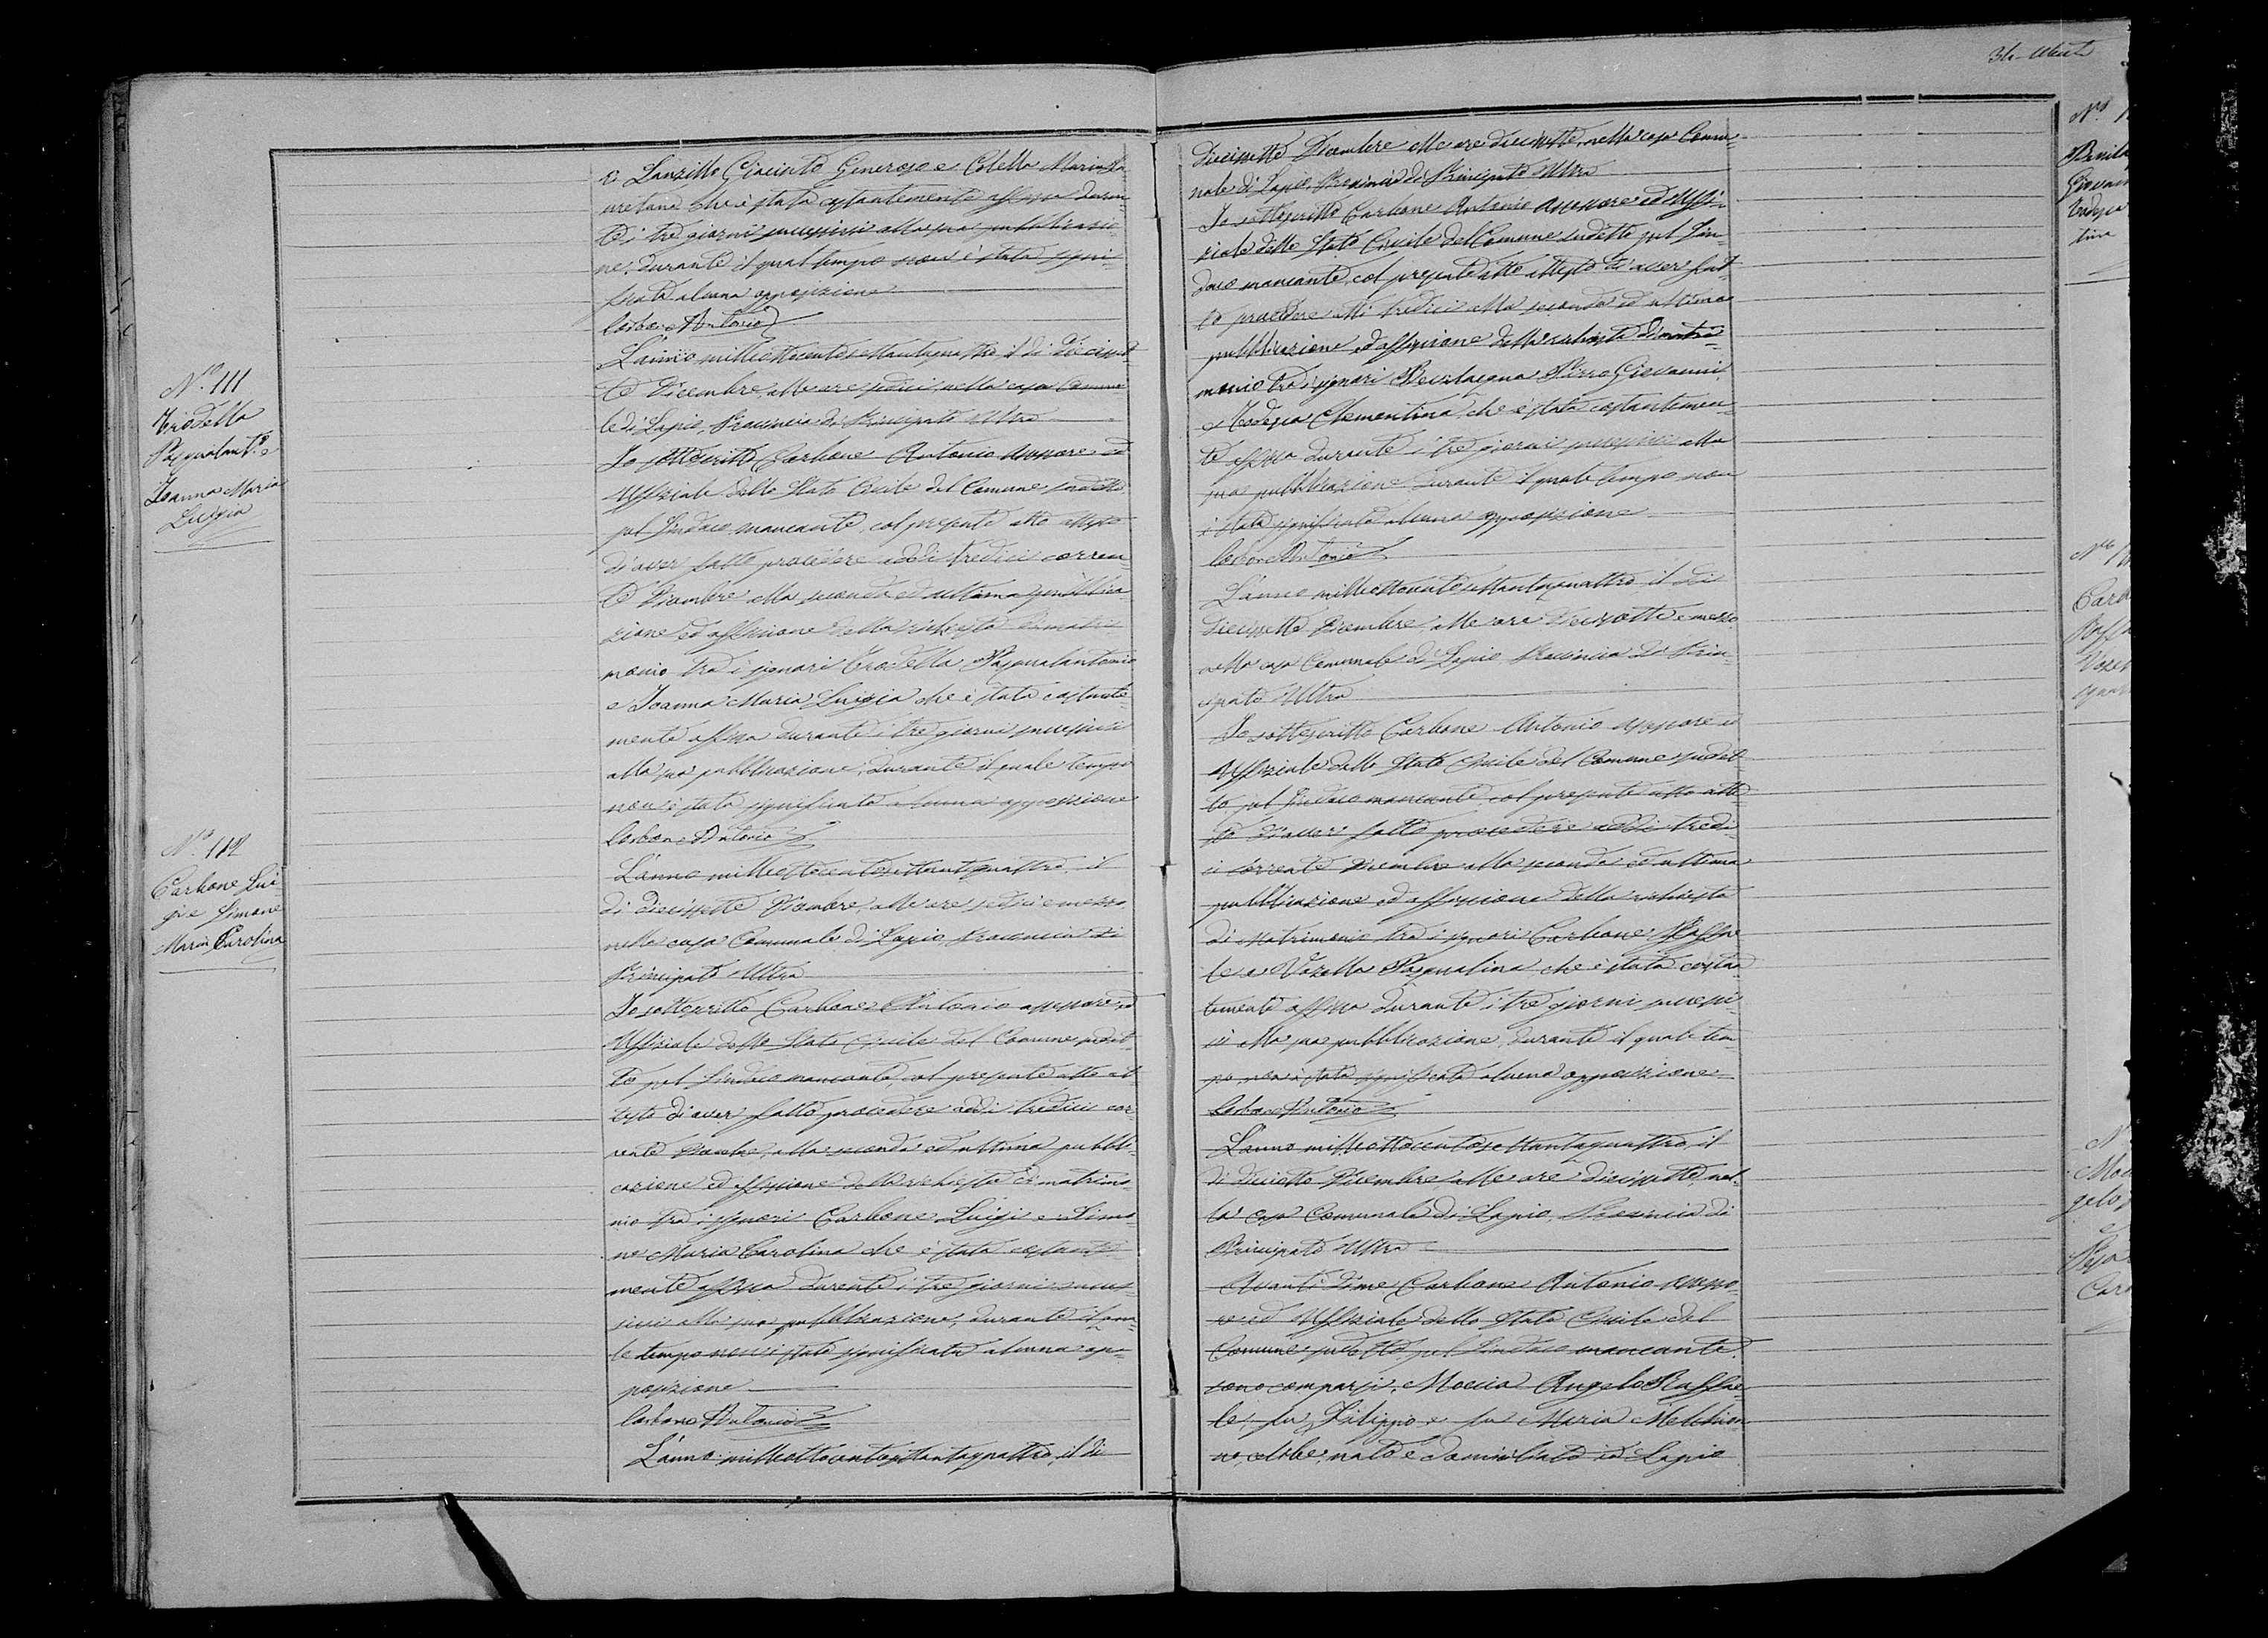 N.º 111
Trodella
Pasqualant.º e
Ioanna Maria
Luigia
N.º 112
Carbone Lui
gi e Simone
Maria Carolina
o Lanzillo Giacinto Generoso e Colella Maria La
uretana che è stata costantemente affissa duran-
te i tre giorni successivi alla sua pubblicazio-
ne, durante il qual tempo non è stata signi-
ficata alcuna opposizione
Carbone Antonio
L'anno milleottocentosettantaquattro il dì diecisset-
te Dicembre, alle ore sedici nella casa Comuna
le di Lapio, Provincia di Principato Ultra
Io sottoscritto Carbone Antonio Assessore ed
Uffiziale dello Stato Civile del Comune sudetto
pel Sindaco mancante, col presente atto attesto
di aver fatto procedere addì tredici corren-
te Dicembre alla seconda ed ultima pubblica-
zione ed affissione della richiesta di matri-
monio tra i signori Trodella Pasqualantonio
e Ioanna Maria Luigia che è stata costante-
mente affissa durante i tre giorni successivi
alla sua pubblicazione, durante il quale tempo
non è stata significata alcuna opposizione
Carbone Antonio
L'anno milleottocentosettantaquattro, il
dì diecissette Dicembre, alle ore sedici e mezzo
nella casa Comunale di Lapio, Provincia di
Principato Ultra
Io sottoscritto Carbone Antonio assessore, ed
Uffiziale dello Stato Civile del Comune sudet-
to pel Sindaco mancante, col presente atto at
testo di aver fatto procedere addì tredici cor-
rente Dicembre, alla seconda ed ultima pubbli-
cazione ed affissione della richiesta di matrimo-
nio tra i signori Carbone Luigi e Simo-
ne Maria Carolina che è stata costante
mente affissa durante i tre giorni succes-
sivi alla sua pubblicazione, durante il qua-
le tempo non è stata significata alcuna op-
posizione
Carbone Antonio
L'anno milleottocentosettantaquattro, il dì
diecissette Dicembre alle ore diecissette, nella casa Comu-
nale di Lapio, Provincia di Principato Ultra
Io sottoscritto Carbone Antonio Assessore ed Uffi-
ziale dello Stato Civile del Comune sudetto pel Sin-
daco mancante, col presente atto attesto di aver fat-
to procedere alli tredici alla seconda ed ultima
pubblicazione ed affissione della richiesta di matri-
monio tra i signori Pirro Giovanni
e Clementina che è stata costantemen-
te affissa durante i tre giorni successivi alla
sua pubblicazione, durante il quale tempo non
è stata significata alcuna opposizione
Carbone Antonio
L'anno milleottocentosettantaquattro il dì
diecissette Dicembre, alle ore diecissette e mezzo
nella casa Comunale di Lapio Provincia di Prin-
cipato Ultra
Io sottoscritto Carbone Antonio assessore ed
Uffiziale dello Stato Civile del Comune sudet-
to pel Sindaco mancante, col presente atto atte-
sto d'aver fatto procedere addì tredi-
ci corrente Dicembre alla seconda ed ultima
pubblicazione ed affissione della richiesta
di matrimonio tra i signori Carbone Raffae
le e Vozella Pasqualina che è stata costan
temente affissa durante i tre giorni successi-
vi alla sua pubblicazione, durante il quale tem-
po non è stata significata alcuna opposizione
Carbone Antonio
L'anno milleottocentosettantaquattro, il
dì diciotto Dicembre alle ore diecissette nel-
la casa Comunale di Lapio, Provincia di
Principato Ultra
Avanti di me Carbone Antonio Assesso-
re ed Uffiziale dello Stato Civile del
Comune sudetto, pel Sindaco mancante,
sono comparsi, Moccia Angelo Raffae-
le, fu Filippo e fu Maria
celibe, nato e domiciliato in Lapio
Giovan
Carb
Raff
Voze
gelo
Caro